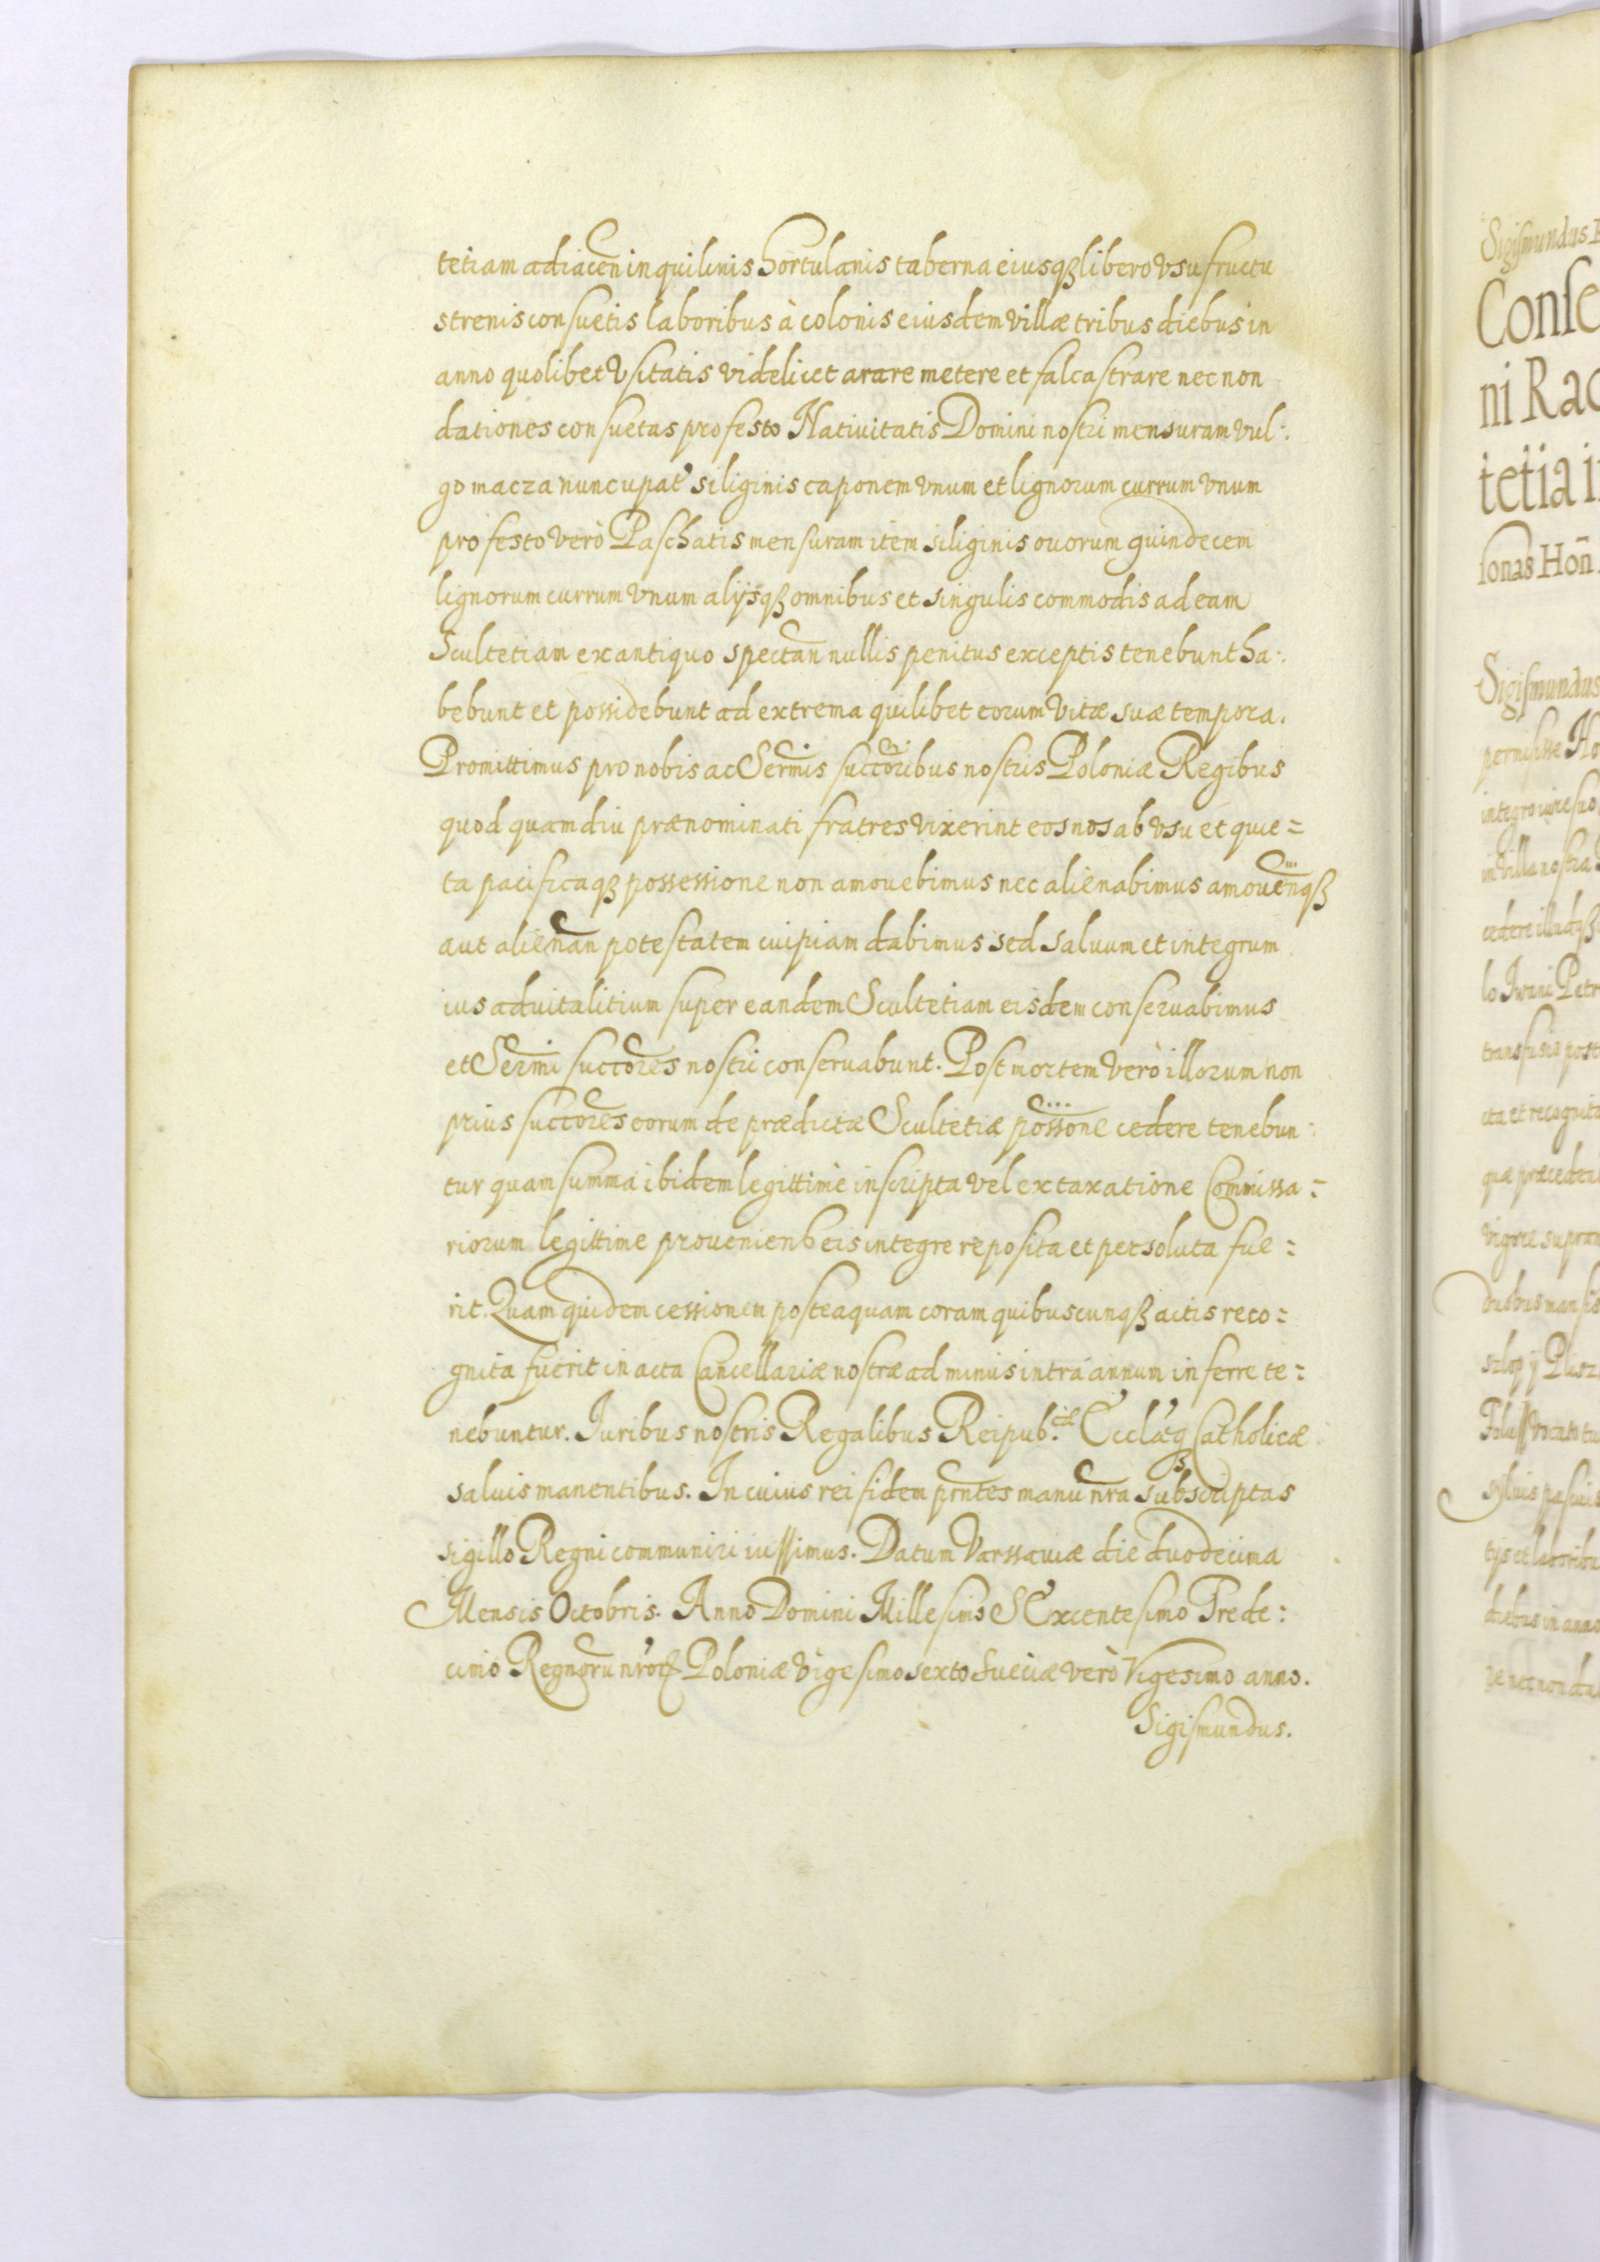 tetiam adiaceñ inquilinis hortulanis taberna eiusqꝫ libero vsufructu
strenis consuetis laboribus à colonis eiusdem villæ tribus diebus in
anno quolibet vsitatis videlicet arare metere et falcastrare nec non
dationes consuetas pro festo Natiuitatis Domini nostri mensuram vul:
go macza nuncupat siliginis caponem vnum et lignorum currum vnum
pro festo verò Paschatis mensuram item siliginis ouorum quindecem
lignorum currum vnum alijsqꝫ omnibus et singulis commodis ad eam
Scultetiam ex antiquo spectañ nullis penitus exceptis tenebunt ha:
bebunt et possidebunt ad extrema quilibet eorum vitæ suæ tempora.
Promittimus pro nobis ac Sermis succoribus nostris Poloniæ Regibus
quod quamdiu prænominati fratres vixerint eos nos ab vsu et quie=
ta pacificaqꝫ possessione non amouebimus nec alienabimus amoueñqꝫ
aut alienañ potestatem cuipiam dabimus sed saluum et integrum
ius aduitalitium super eandem Scultetiam eisdem conseruabimus
et Sermi succores nostri conseruabunt. Post mortem verò illorum non
prius succores eorum de prædictæ Scultetiæ possone cedere tenebun:
tur quam summa ibidem legittimè inscripta vel ex taxatione Commissa=
riorum legittime prouenien eis integre reposita et persoluta fue=
rit. Quam quidem cessionem posteaquam coram quibuscunqꝫ actis reco=
gnita fuerit in acta Cancellariæ nostræ ad minus intra annum inferre te=
nebuntur. Iuribus nostris Regalibus Reipub.cæ Ecclæqꝫ Catholicæ
saluis manentibus. In cuius rei fidem prntes manu nra subscriptas
sigillo Regni communiri iussimus. Datum Varssauiæ die duodecima
Mensis Octobris. Anno Domini Millesimo SExcentesimo Trede:
cimo Regnorum nroꝝ Poloniæ vigesimo sexto Sueciæ verò vigesimo anno.
Sigismundus.
Sigismundus
Conse
ni Rac
tetia i
ionas Hoñ
Sigismundus
permisisse Ho
integro iure suo
in villa nostra
cedere illudqꝫ
lo Iwani Petr
transfusio post
cta et recognita
quæ præcedent
vigore supran
duobus mansis
szlop ij Plusz
syluis pascuis
tijs et laboribu
diebus in anno
re nec non da